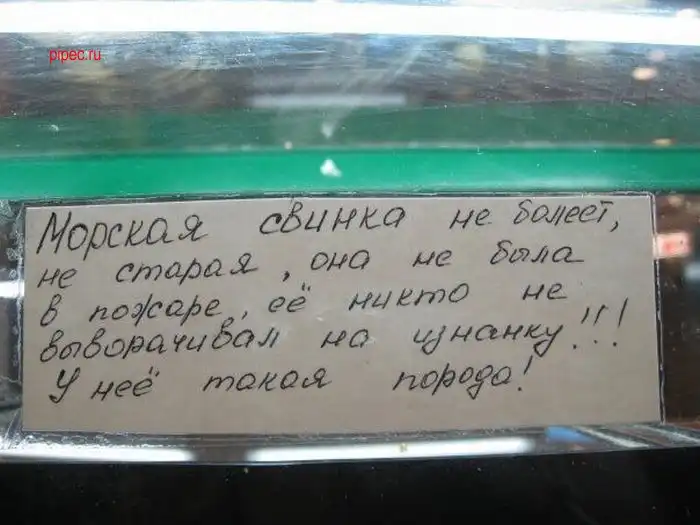 pipec.ru
Морская свинка не болеет,
не старая, она не была
в пожаре, её никто не
выворачивал на изнанку!!!
У неё такая порода!